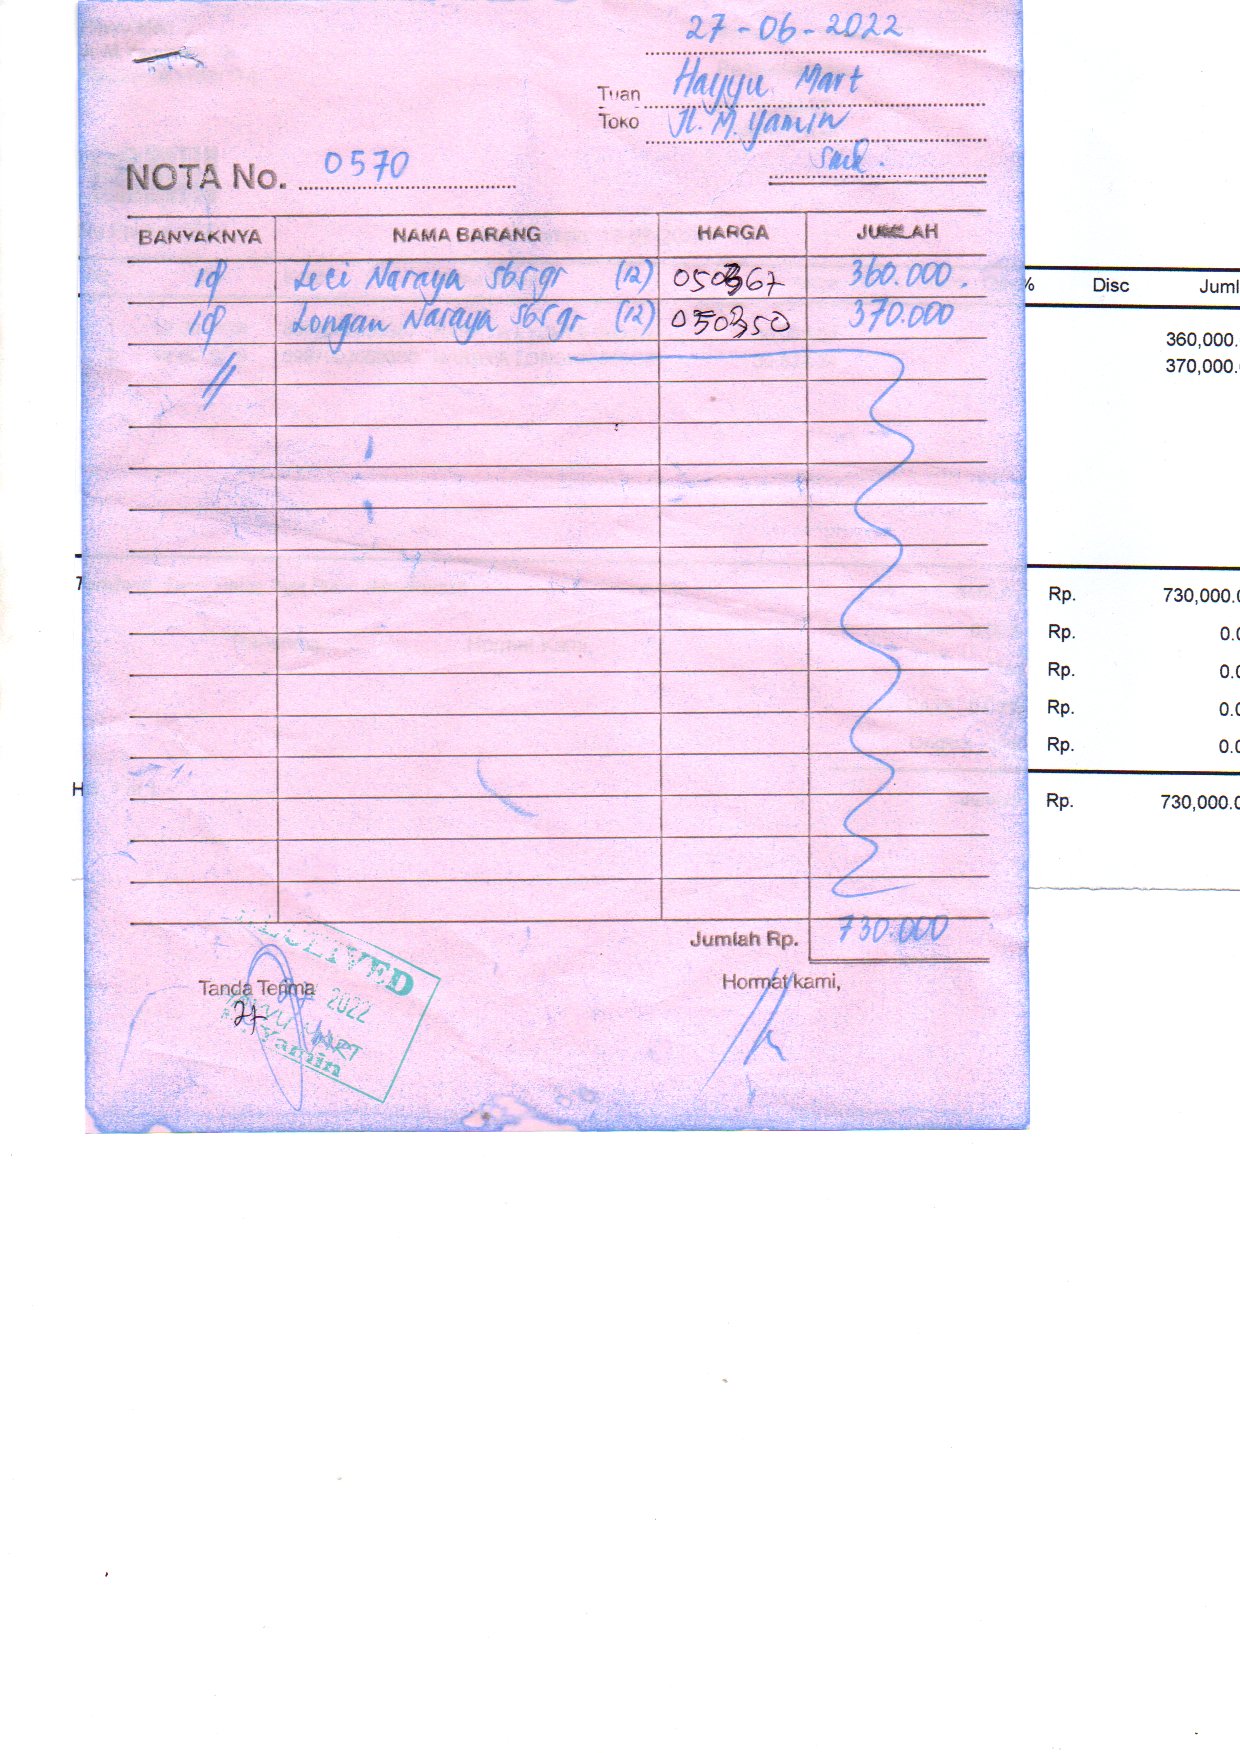 27-06-2022
Tuan Hayyu Mart
Toko Jl. M. Yamin
Smd.
NOTA No. 0570
BANYAKNYA NAMA BARANG HARGA JUMLAH
% Disc Juml
Leci Naraya 565gr (12) 050367 360.000.
Longan Naraya 565gr (12) 050350 370.000
360,000.
370,000.
Rp. 730,000.0
Rp. 0.0
Rp. 0.0
Rp. 0.0
Rp. 0.0
H Rp. 730,000.0
Jumlah Rp. 730.000
Tanda Terima Hormat kami,
RECEIVED
27 2022
HAYYU MART
Yamin